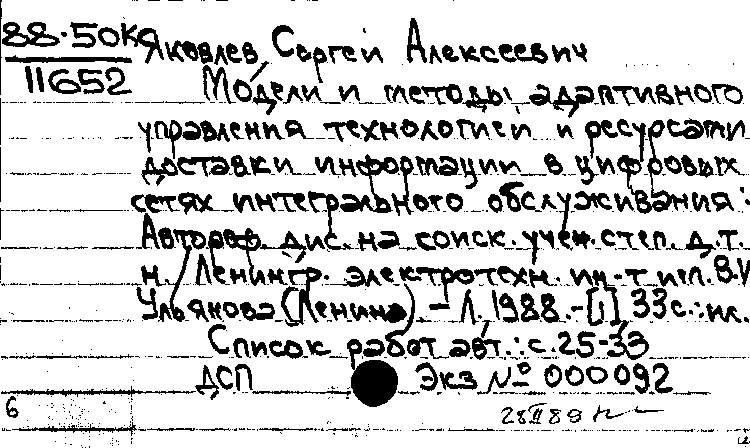 88-50К Яковлев Сергей Алексеевич
11652 Модели и методы адаптивного
управления технологией и ресурсами
доставки информации в цифровых
сетях интегрального обслуживания:
Автореф. дис. на соиск. учен. степ. д.т.
н. / Ленингр. электротехн. ин-т им. В.И
Ульянова (Ленина). - Л. 1988. - [1] 33 с.: ил.
Список работ авт.: с. 25-33
ДСП Экз № 000092
6 28 II 89